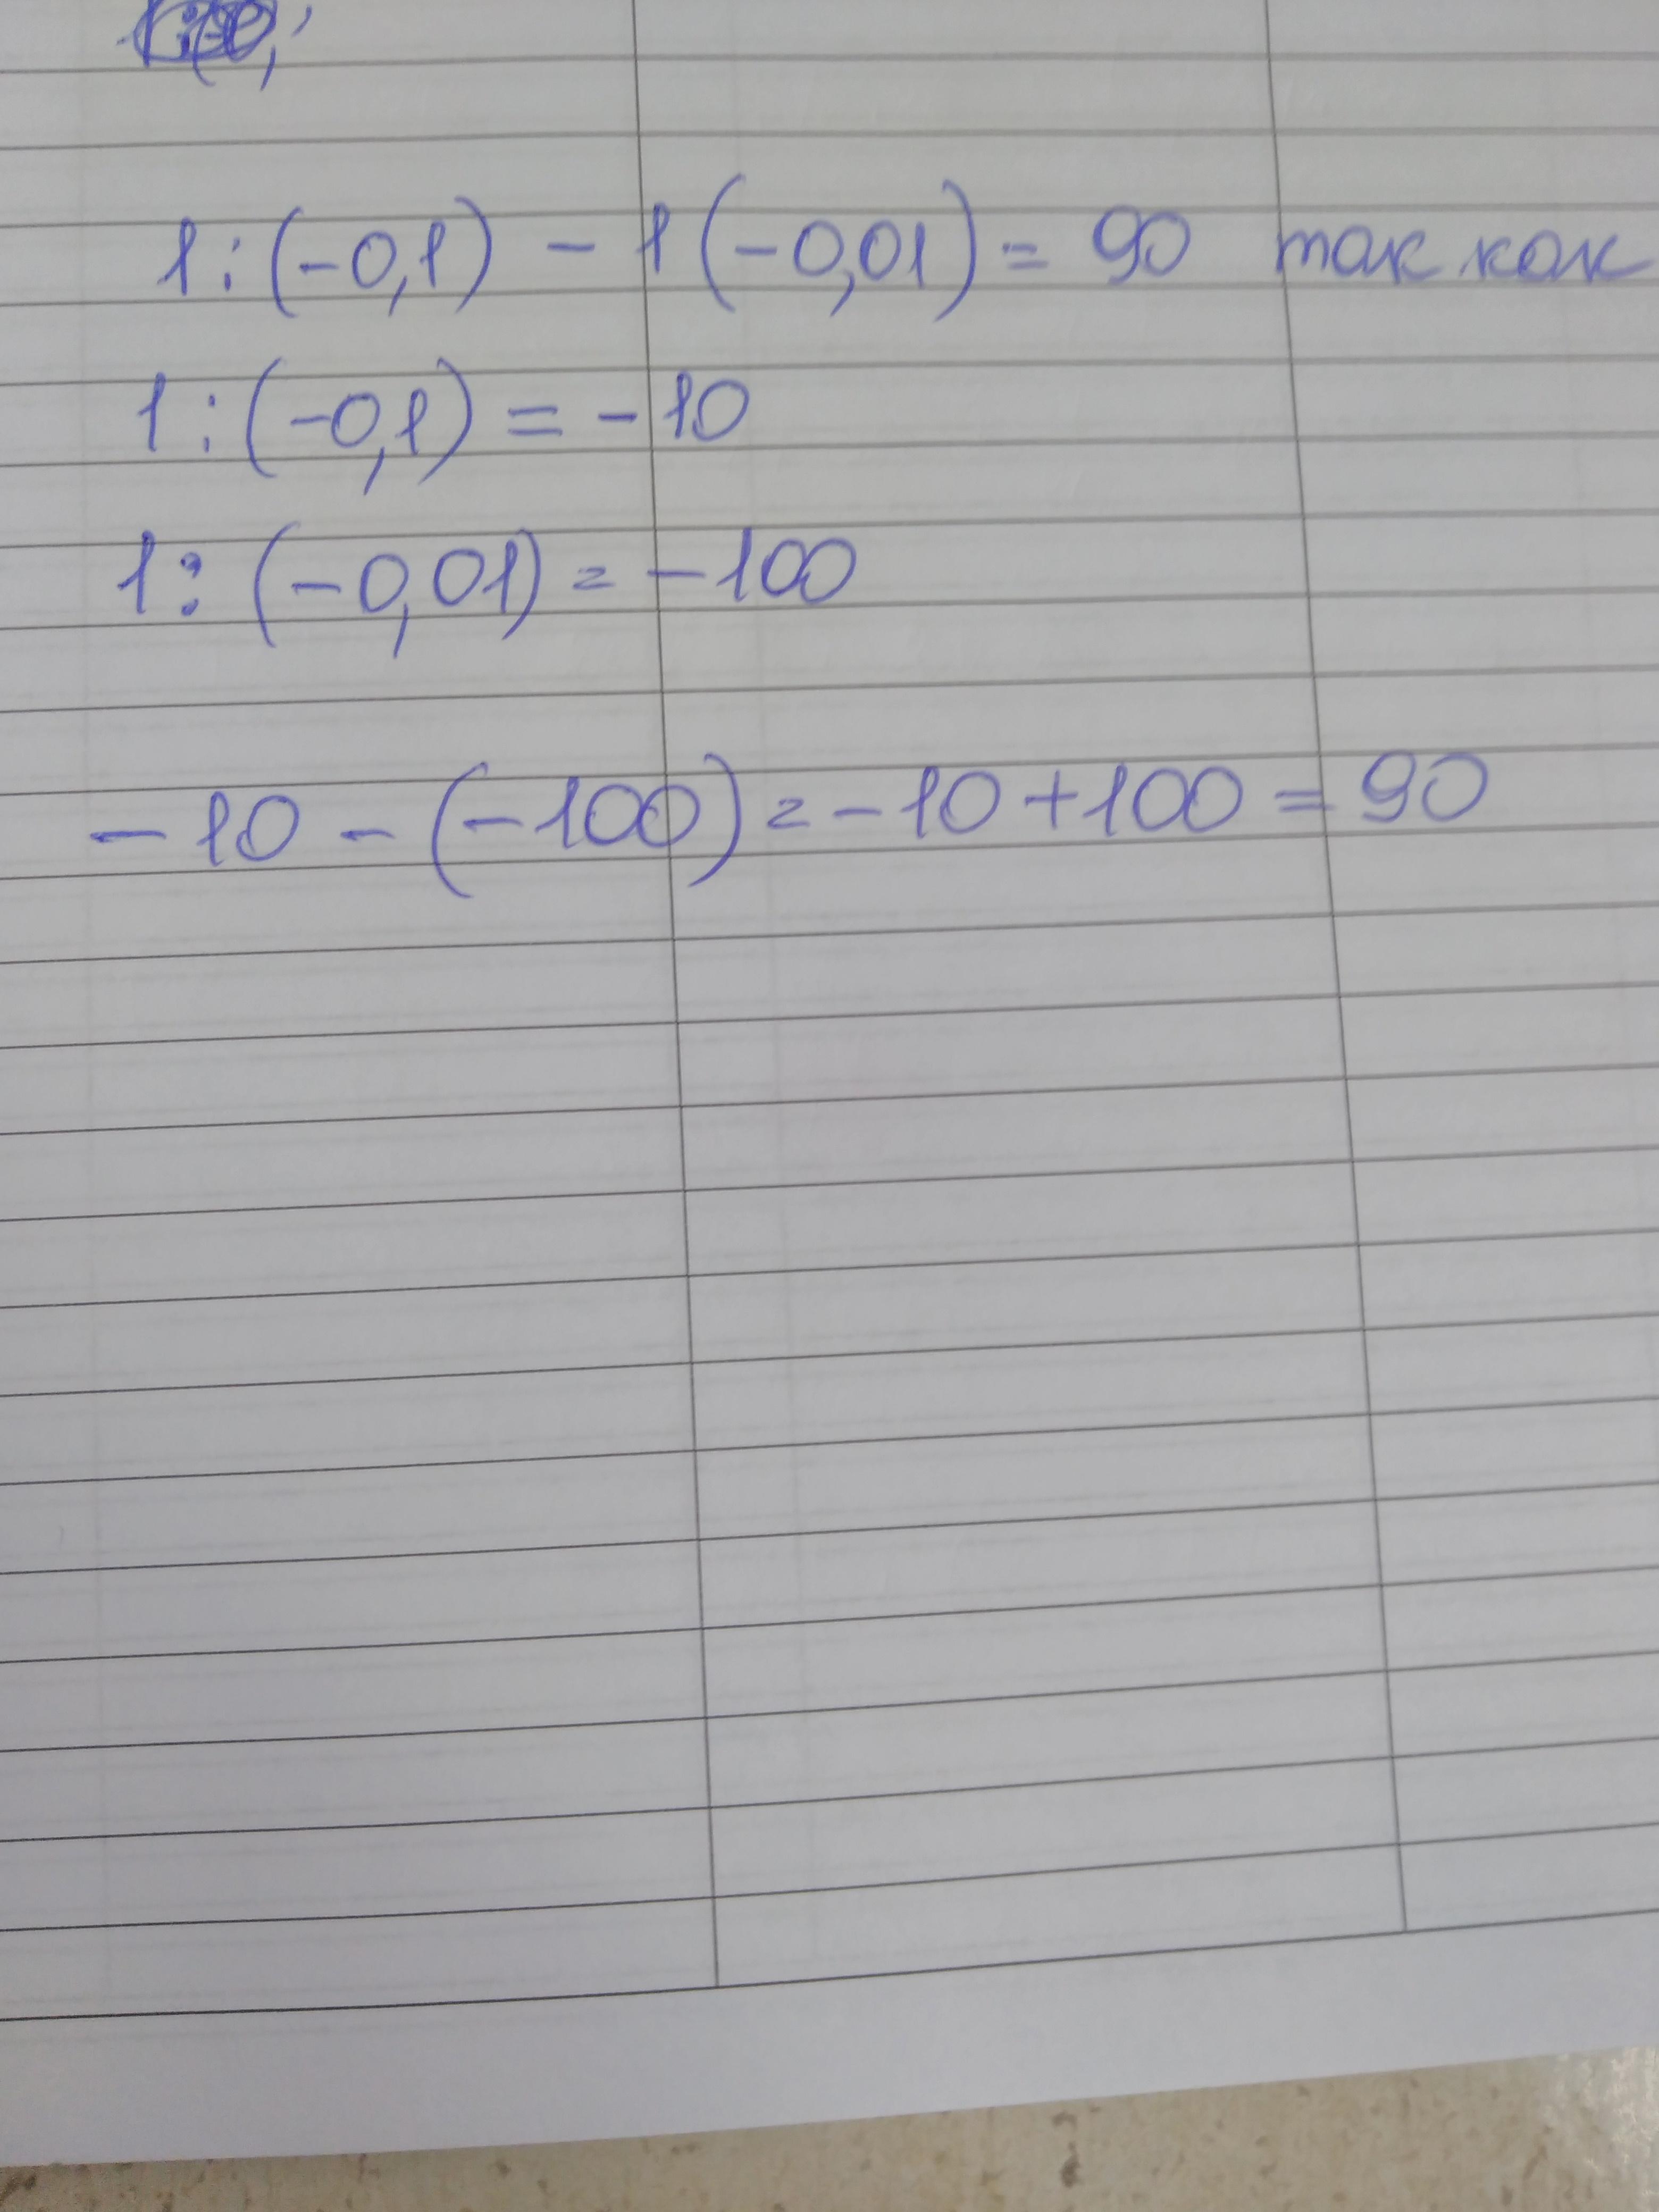 1:(-0,1) - 1(-0,01) = 90 так как
1:(-0,1) = -10
1:(-0,01) = -100
-10 - (-100) = -10 + 100 = 90